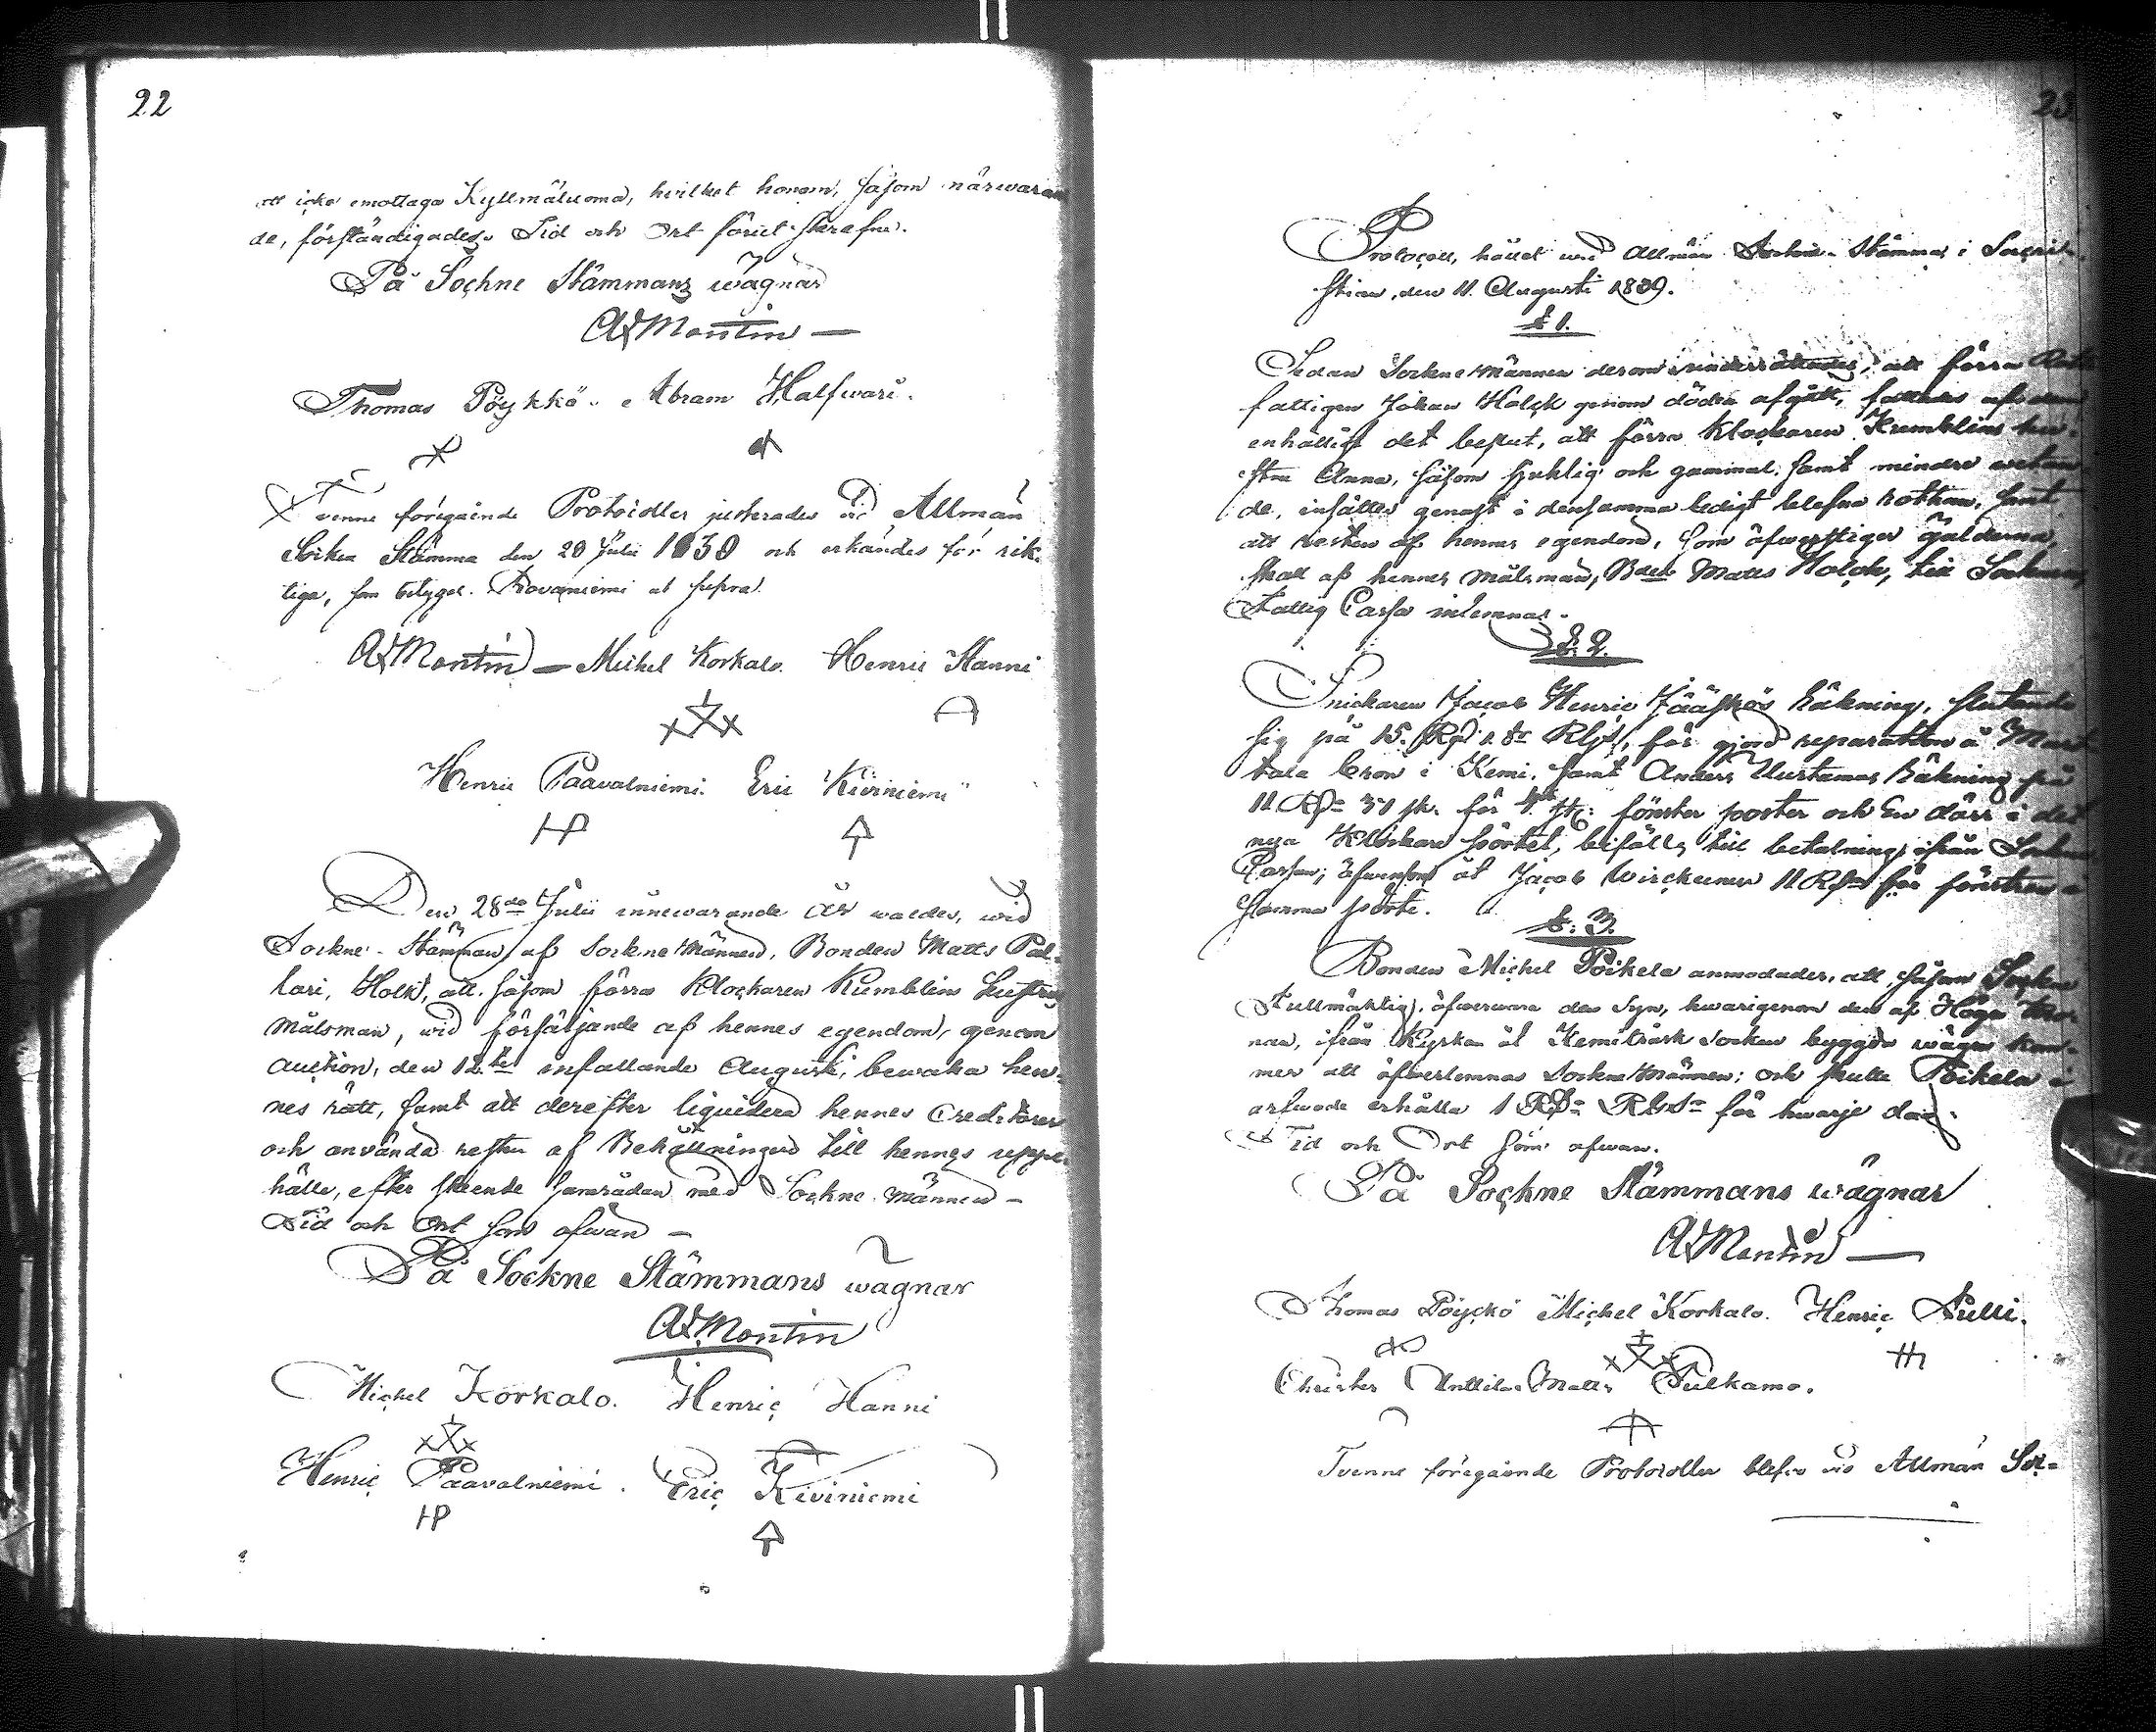 22
att icke emottaga Kyllmäluoma, hvilket honom, såsom närwaran
de, förständigades. Tid och Ort förut skrefne.
På Sochne Stämmans wägnar
Ad Montin
Thomas Pöykkö. Abram Halfwari.
Tvenne föregående Protocoller justerades vid Allmän
Sockne Stämma den 28 Julii 1839 och erkändes för rik-
tige, som betygar. Rovaniemi ut supra.
Ad Montin Michel Korkalo. Henric Hanni
Henric Paavalniemi. Eric Kiviniemi
Den 28de Julii innewarande År waldes, wid
Sockne-Stämman af Sockne Männen, Bonden Matts Pal-
lari, Holk, att såsom förra Klockaren Kumblins Hustrus
Målsman, wid försäljande af hennes egendom, genom
Auction, den 12te infallande Augusti, bewaka hen-
nes rätt, samt att derefter liquidera hennes Creditorer
och använda resten af Behållningen till hennes uppe-
hälle, efter skeende samrådan med Sockne Männen -
Tid och Ort som ofwan -
På Sockne Stämmans wägnar
Ad Montin
Michel Korkalo. Henric Hanni
Henric Paavalniemi. Eric Kiviniemi
HP
23.
Protocoll, hållet wid Allmän Sockne-Stämma i Sacri-
stian, den 11. Augusti 1839.
§ 1.
Sedan Sockne Männen derom underrättades, att förra Rote
fattigen Johan Holck genom döden afgått, fattades af dem
enhälligt det beslut, att förra Klockaren Kumblins hu-
stru Anna, såsom sjuklig och gammal, samt mindre wetan-
de, insättes genast i densamma ledigt blefna rothen, samt
att resten af hennes egendom, som öfwerstiger gälderna,
skall af hennes målsman, Bden Matts Holck, till Socknens
Fattig Cassa inlemnas.
§. 2.
Snickaren Jacob Henric Jääskös Räkning, slutande
sig på 15. Rd 1. sk Rgs, för gjord reparation å Mart
tala bron i Kemi, samt Anders Uurtamas Räkning på
11 Rd 34 sk. för 4 st: fönster poster och En dörr i det
nya Klockare pörtet, bifälls till betalning ifrån Sockne
Cassan; äfwensom åt Jacob Wirckunen 11 Rd för fönstren i
samma pörte.
§. 3.
Bonden Michel Poikela anmodades, att såsom Sockne
Fullmäktig, öfwerwara den Syn, hwarigenom den af Höga Kro-
nan, ifrån Kyrkan åt Kemiträsk Socken byggda wägen kom-
mer att öfwerlemnas Sockne Männen; och skulle Poikela i
arfwode erhålla 1 Rd Rgs för hwarje dag.
Tid och Ort som ofwan.
På Sochne Stämmans wägnar
Ad Montin
Thomas Pöyckö Michel Korkalo. Henric
Christer Unttila Matts Pulkamo.
Tvenne föregående Protocoller blefvo vid Allmän Soc-